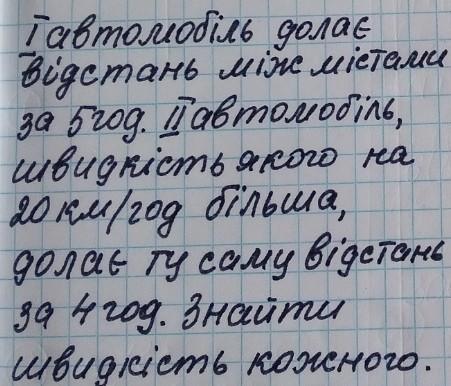 I автомобіль долає
відстань між містами
за 5 год. II автомобіль,
швидкість якого на
20 км/год більша,
долає ту саму відстань
за 4 год. Знайти
швидкість кожного.